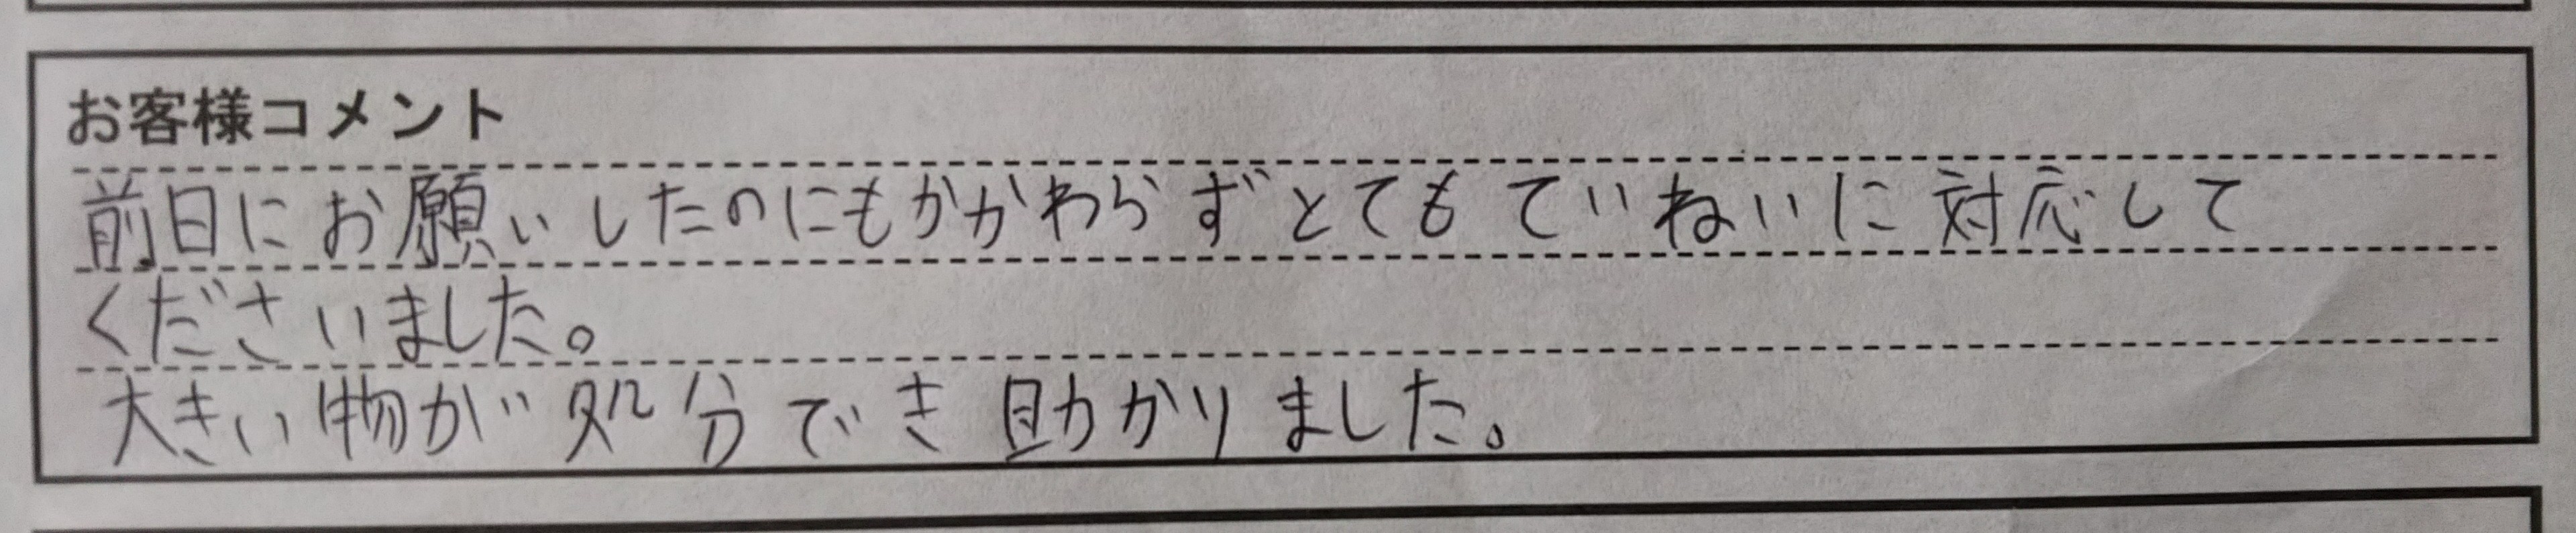 お客様コメント
前日にお願いしたのにもかかわらずとてもていねいに対応して
くださいました。
大きい物が処分でき助かりました。